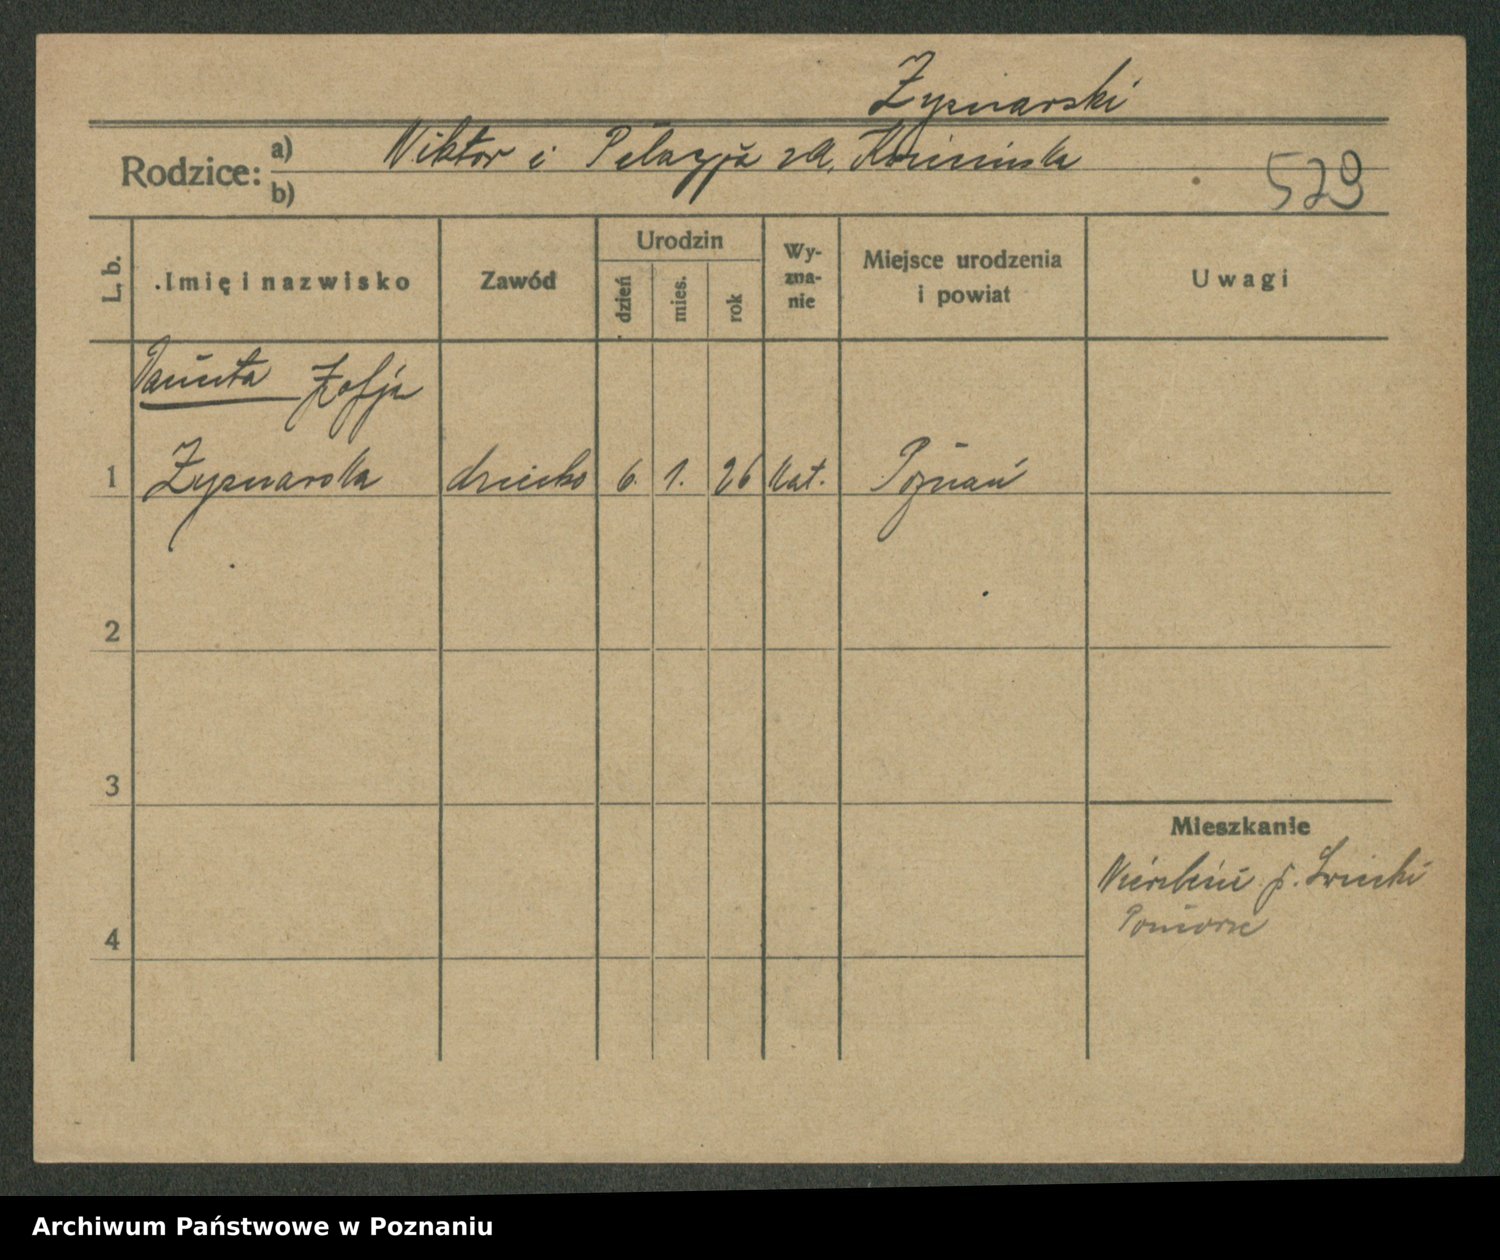 Żyznarski
Rodzice: a) Wiktor i Pelagja zd. Kozimińska
b)
529
L. b.
Imię i nazwisko
Zawód
Urodzin
dzień
mies.
rok
Wy-
zna-
nie
Miejsce urodzenia
i powiat
Uwagi
Danuta Zofja
1 Żyznarska dziecko 6. 1. 26 kat. Poznań
2
3
Mieszkanie
p. Świecki
Pomorze
4
Archiwum Państwowe w Poznaniu